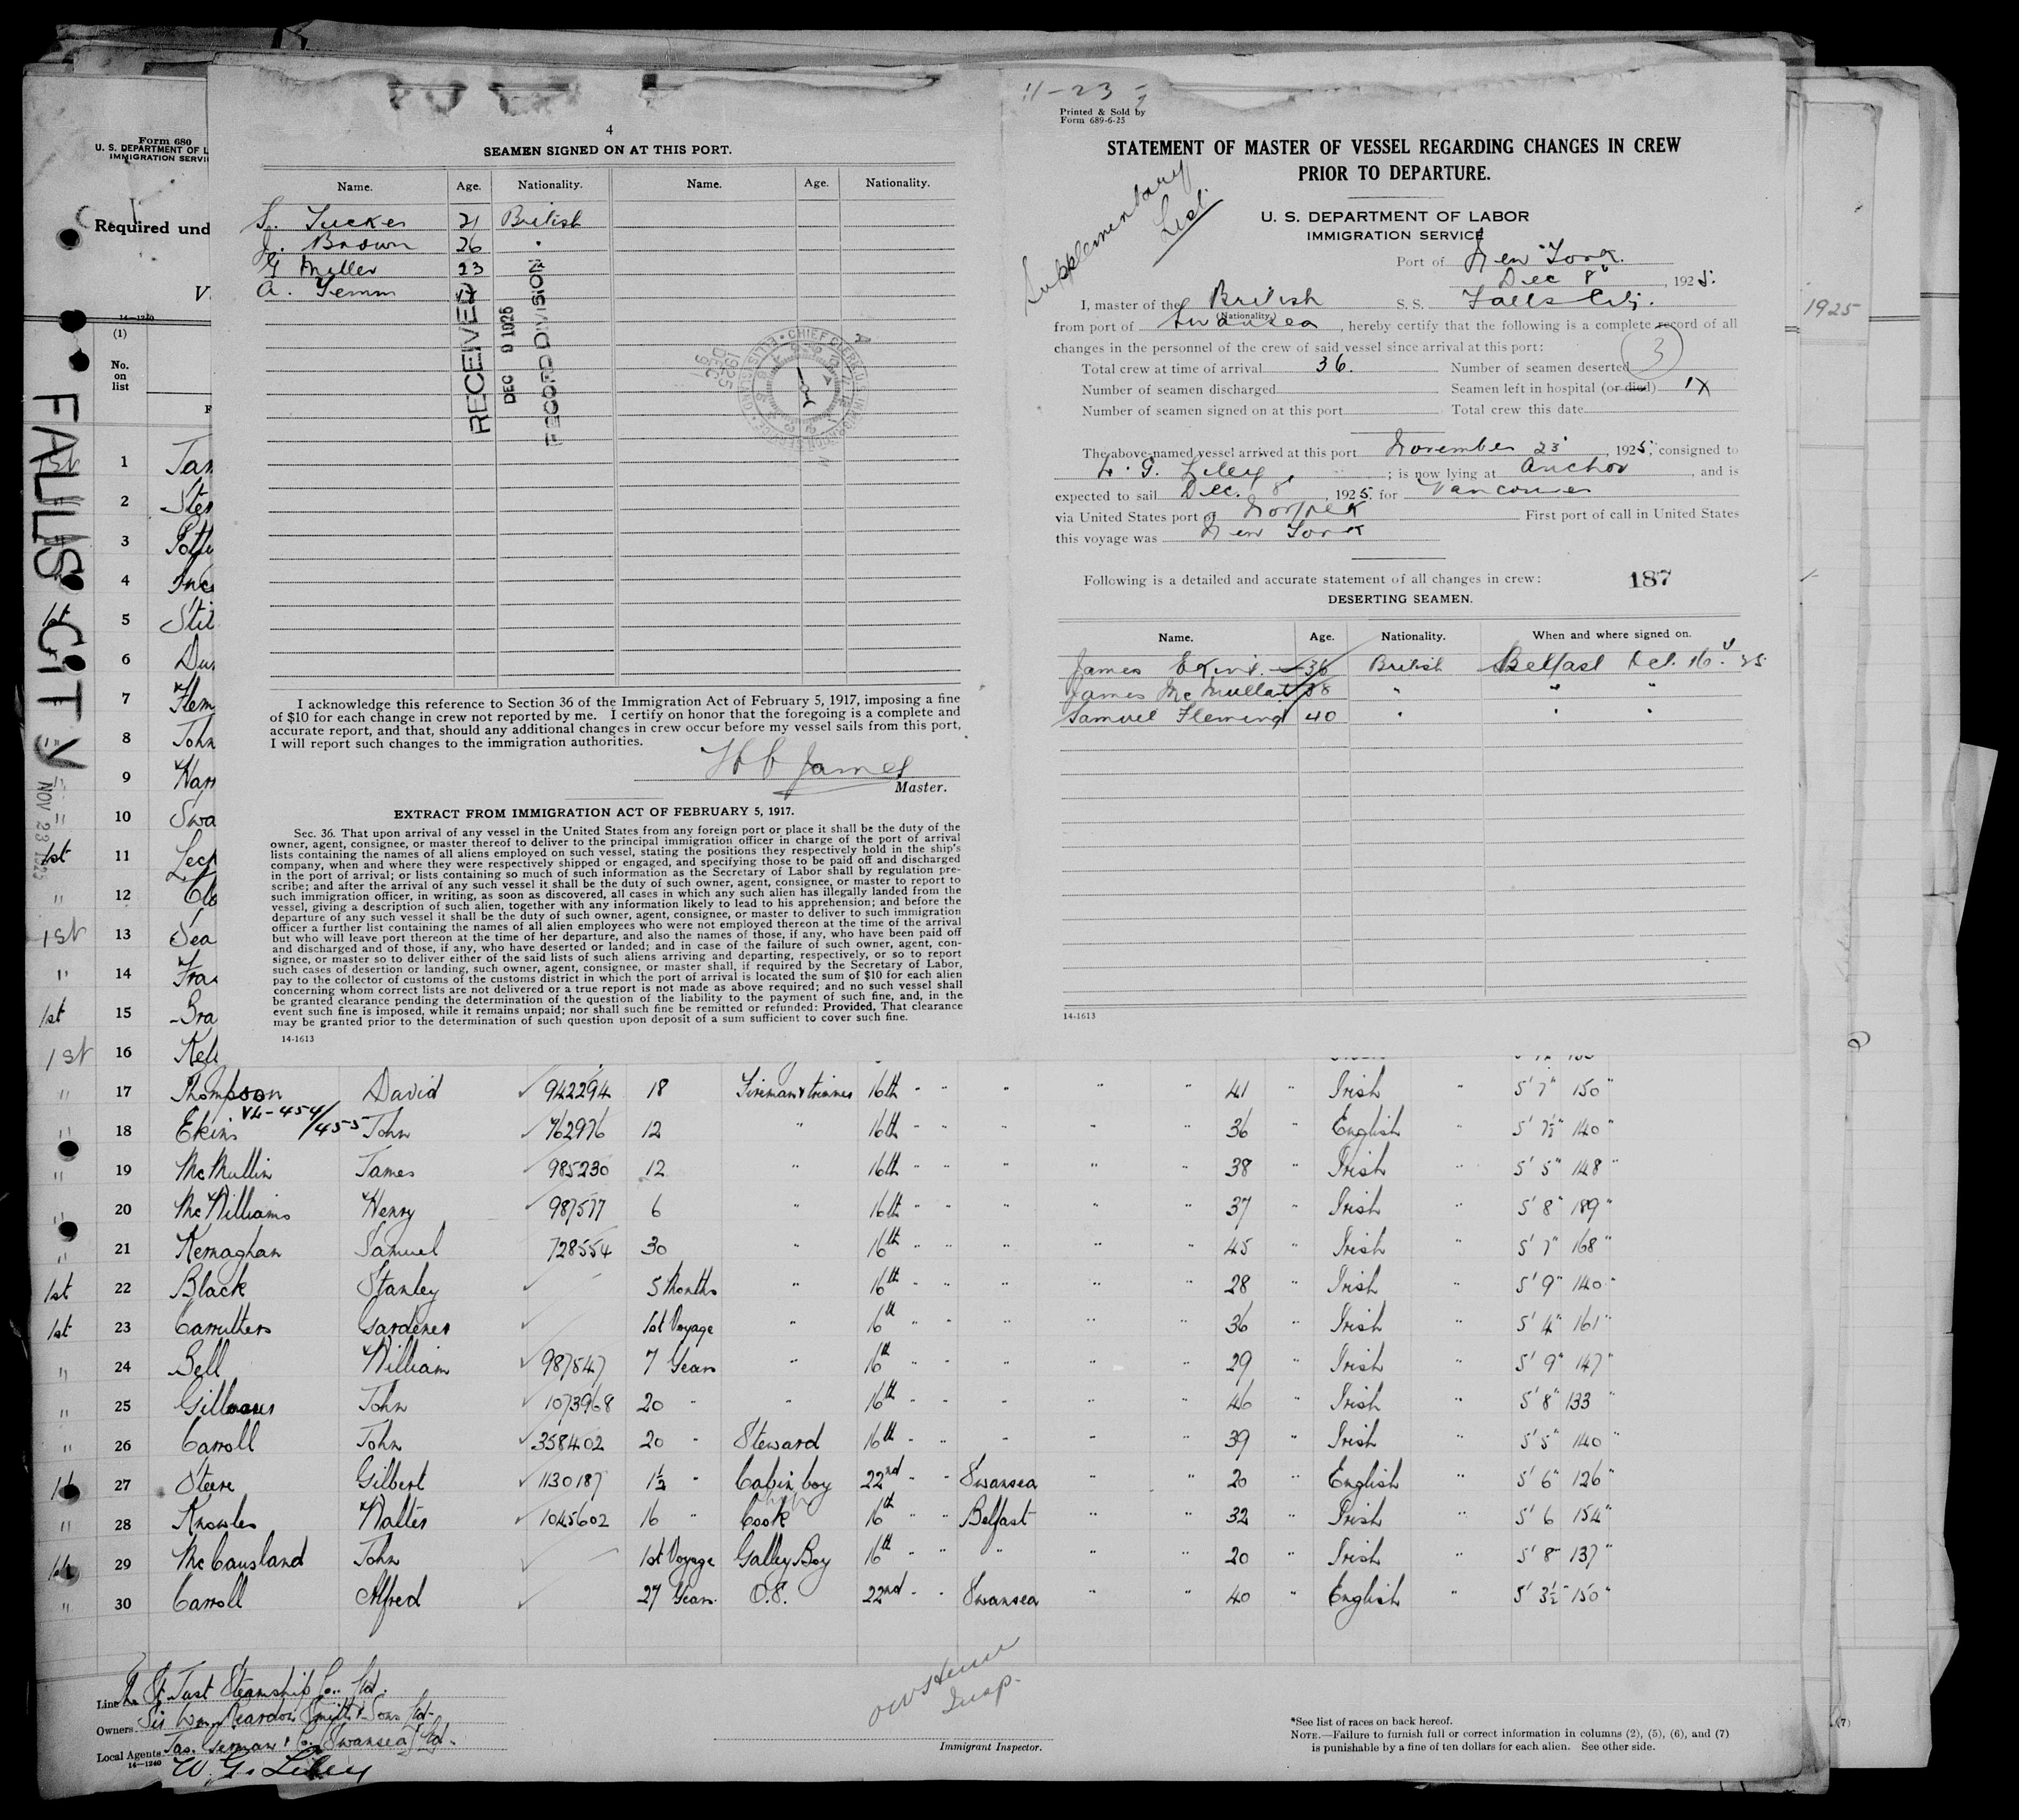 Form 680
U. S. DEPARTMENT OF L
IMMIGRATION SERVI
Required und
14-1240
(1)
No.
on
list
FALLS CITY
NOV 23 1925
1st 1 Jan
2 Ste
3 Pott
4
1st 5 Stil
6 Du
7 Flem
8 John
9 Har
10 Swa
1st 11 Lec
12 Clo
1st 13 Sea
14 Fra
1st 15 Bra
1st 16 Kel
4
SEAMEN SIGNED ON AT THIS PORT.
Name. Age. Nationality. Name. Age. Nationality.
S. Tucker 21 British
J. Brown 26 "
G Miller 23
A. Gemm
RECEIVED
DEC 9 1925
RECORD DIVISION
I acknowledge this reference to Section 36 of the Immigration Act of February 5, 1917, imposing a fine
of $10 for each change in crew not reported by me. I certify on honor that the foregoing is a complete and
accurate report, and that, should any additional changes in crew occur before my vessel sails from this port,
I will report such changes to the immigration authorities.
James
Master.
EXTRACT FROM IMMIGRATION ACT OF FEBRUARY 5, 1917.
Sec. 36. That upon arrival of any vessel in the United States from any foreign port or place it shall be the duty of the
owner, agent, consignee, or master thereof to deliver to the principal immigration officer in charge of the port of arrival
lists containing the names of all aliens employed on such vessel, stating the positions they respectively hold in the ship's
company, when and where they were respectively shipped or engaged, and specifying those to be paid off and discharged
in the port of arrival; or lists containing so much of such information as the Secretary of Labor shall by regulation pre-
scribe; and after the arrival of any such vessel it shall be the duty of such owner, agent, consignee, or master to report to
such immigration officer, in writing, as soon as discovered, all cases in which any such alien has illegally landed from the
vessel, giving a description of such alien, together with any information likely to lead to his apprehension; and before the
departure of any such vessel it shall be the duty of such owner, agent, consignee, or master to deliver to such immigration
officer a further list containing the names of all alien employees who were not employed thereon at the time of the arrival
but who will leave port thereon at the time of her departure, and also the names of those, if any, who have been paid off
and discharged and of those, if any, who have deserted or landed; and in case of the failure of such owner, agent, con-
signee, or master so to deliver either of the said lists of such aliens arriving and departing, respectively, or so to report
such cases of desertion or landing, such owner, agent, consignee, or master shall, if required by the Secretary of Labor,
pay to the collector of customs of the customs district in which the port of arrival is located the sum of $10 for each alien
concerning whom correct lists are not delivered or a true report is not made as above required; and no such vessel shall
be granted clearance pending the determination of the question of the liability to the payment of such fine, and, in the
event such fine is imposed, while it remains unpaid; nor shall such fine be remitted or refunded: Provided, That clearance
may be granted prior to the determination of such question upon deposit of a sum sufficient to cover such fine.
14-1613
11-23-
Printed & Sold by
Form 689-6-25
STATEMENT OF MASTER OF VESSEL REGARDING CHANGES IN CREW
PRIOR TO DEPARTURE.
Supplementary
List.
U. S. DEPARTMENT OF LABOR
IMMIGRATION SERVICE
Port of New York.
Dec 8", 1925.
I, master of the British S. S. Falls City.
(Nationality.)
from port of Swansea, hereby certify that the following is a complete record of all
changes in the personnel of the crew of said vessel since arrival at this port:
Total crew at time of arrival 36. Number of seamen deserted 3
Number of seamen discharged Seamen left in hospital (or died) 1X
Number of seamen signed on at this port Total crew this date
The above-named vessel arrived at this port November 23, 1925, consigned to
W. G. Liley; is now lying at Anchor, and is
expected to sail Dec. 8, 1925. for Vancouver
via United States port of Norfolk First port of call in United States
this voyage was New York
Following is a detailed and accurate statement of all changes in crew: 187
DESERTING SEAMEN.
Name. Age. Nationality. When and where signed on.
James Ekins. 36 British Belfast Oct. 16. 25.
James McMullan 38 " " "
Samuel Fleming 40 " " "
14-1613
1925
" 17 Thompson David 942294 18 Fireman & trimmer 16th " " " " " 41 " Irish " 5' 7" 150"
VL-454/455
" 18 Ekins John 762976 12 " 16th " " " " " 36 " English " 5' 7½" 140"
" 19 McMullin James 985230 12 " 16th " " " " " 38 " Irish " 5' 5" 148"
" 20 McWilliams Henry 987577 6 " 16th " " " " " 37 " Irish " 5' 8" 189"
" 21 Kernaghan Samuel 728554 30 " 16th " " " " " 45 " Irish " 5' 7" 168"
1st 22 Black Stanley 5 Months " 16th " " " " " 28 " Irish " 5' 9" 140"
1st 23 Carruthers Gardener 1st Voyage " 16th " " " " " 36 " Irish " 5' 4" 161"
" 24 Bell William 987547 7 Years " 16th " " " " " 29 " Irish " 5' 9" 147"
" 25 John 1073968 20 " " 16th " " " " " 46 " Irish " 5' 8" 133"
" 26 Carroll John 358402 20 " Steward 16th " " " " " 39 " Irish " 5' 5" 140"
1st 27 Steere Gilbert 1130187 1½ " Cabin boy 22nd " " Swansea " " 20 " English " 5' 6" 126"
" 28 Knowles Walter 1045602 16 " Cook 16th " " Belfast " " 32 " Irish " 5' 6 154"
1st 29 McCausland John 1st Voyage Galley Boy 16th " " " " " 20 " Irish " 5' 8" 137"
" 30 Carroll Alfred 27 Years. O.S. 22nd " " Swansea " " 40 " English " 5' 3½" 150"
Line The St Just Steamship Co. Ltd.
Owners Sir Wm Reardon Smith & Sons Ltd.
Local Agents Swansea Ltd.
14-1240 W. G. Liley
Insp.
Immigrant Inspector.
*See list of races on back hereof.
NOTE.—Failure to furnish full or correct information in columns (2), (5), (6), and (7)
is punishable by a fine of ten dollars for each alien. See other side.
(7)